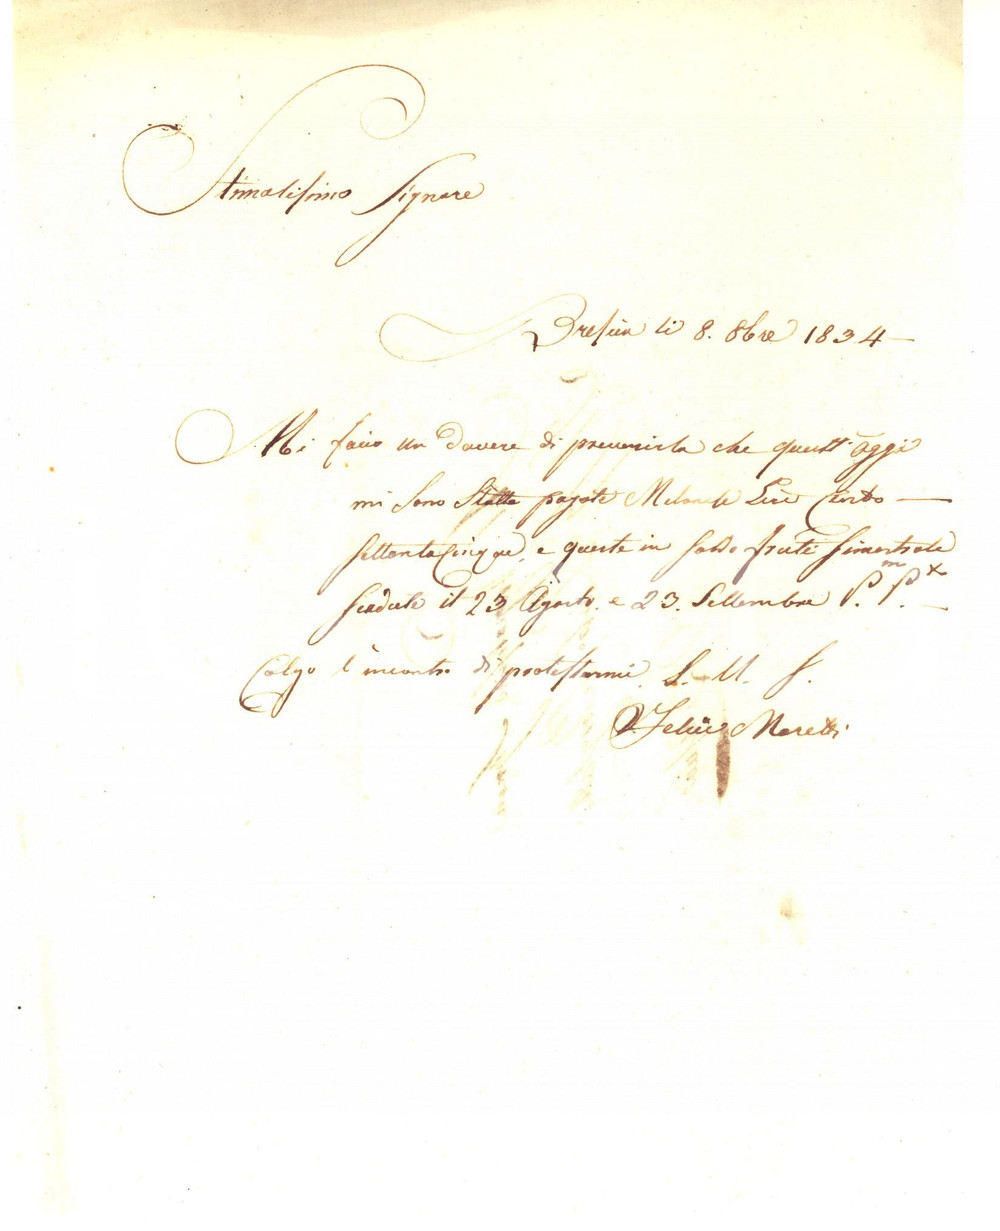 Stimatissimo Signore
Brescia li 8. 8bre 1834
Mi faccio un dovere di prevenirla che quest'oggi
mi sono state pagate Milanesi Lire Cento
settantacinque, e queste in saldo fitti simestrale
scadute il 23 Agosto. e 23. Settembre P.mo P.to
Colgo l'incontro di protestarmi. S. U. S.
Felice Moretti